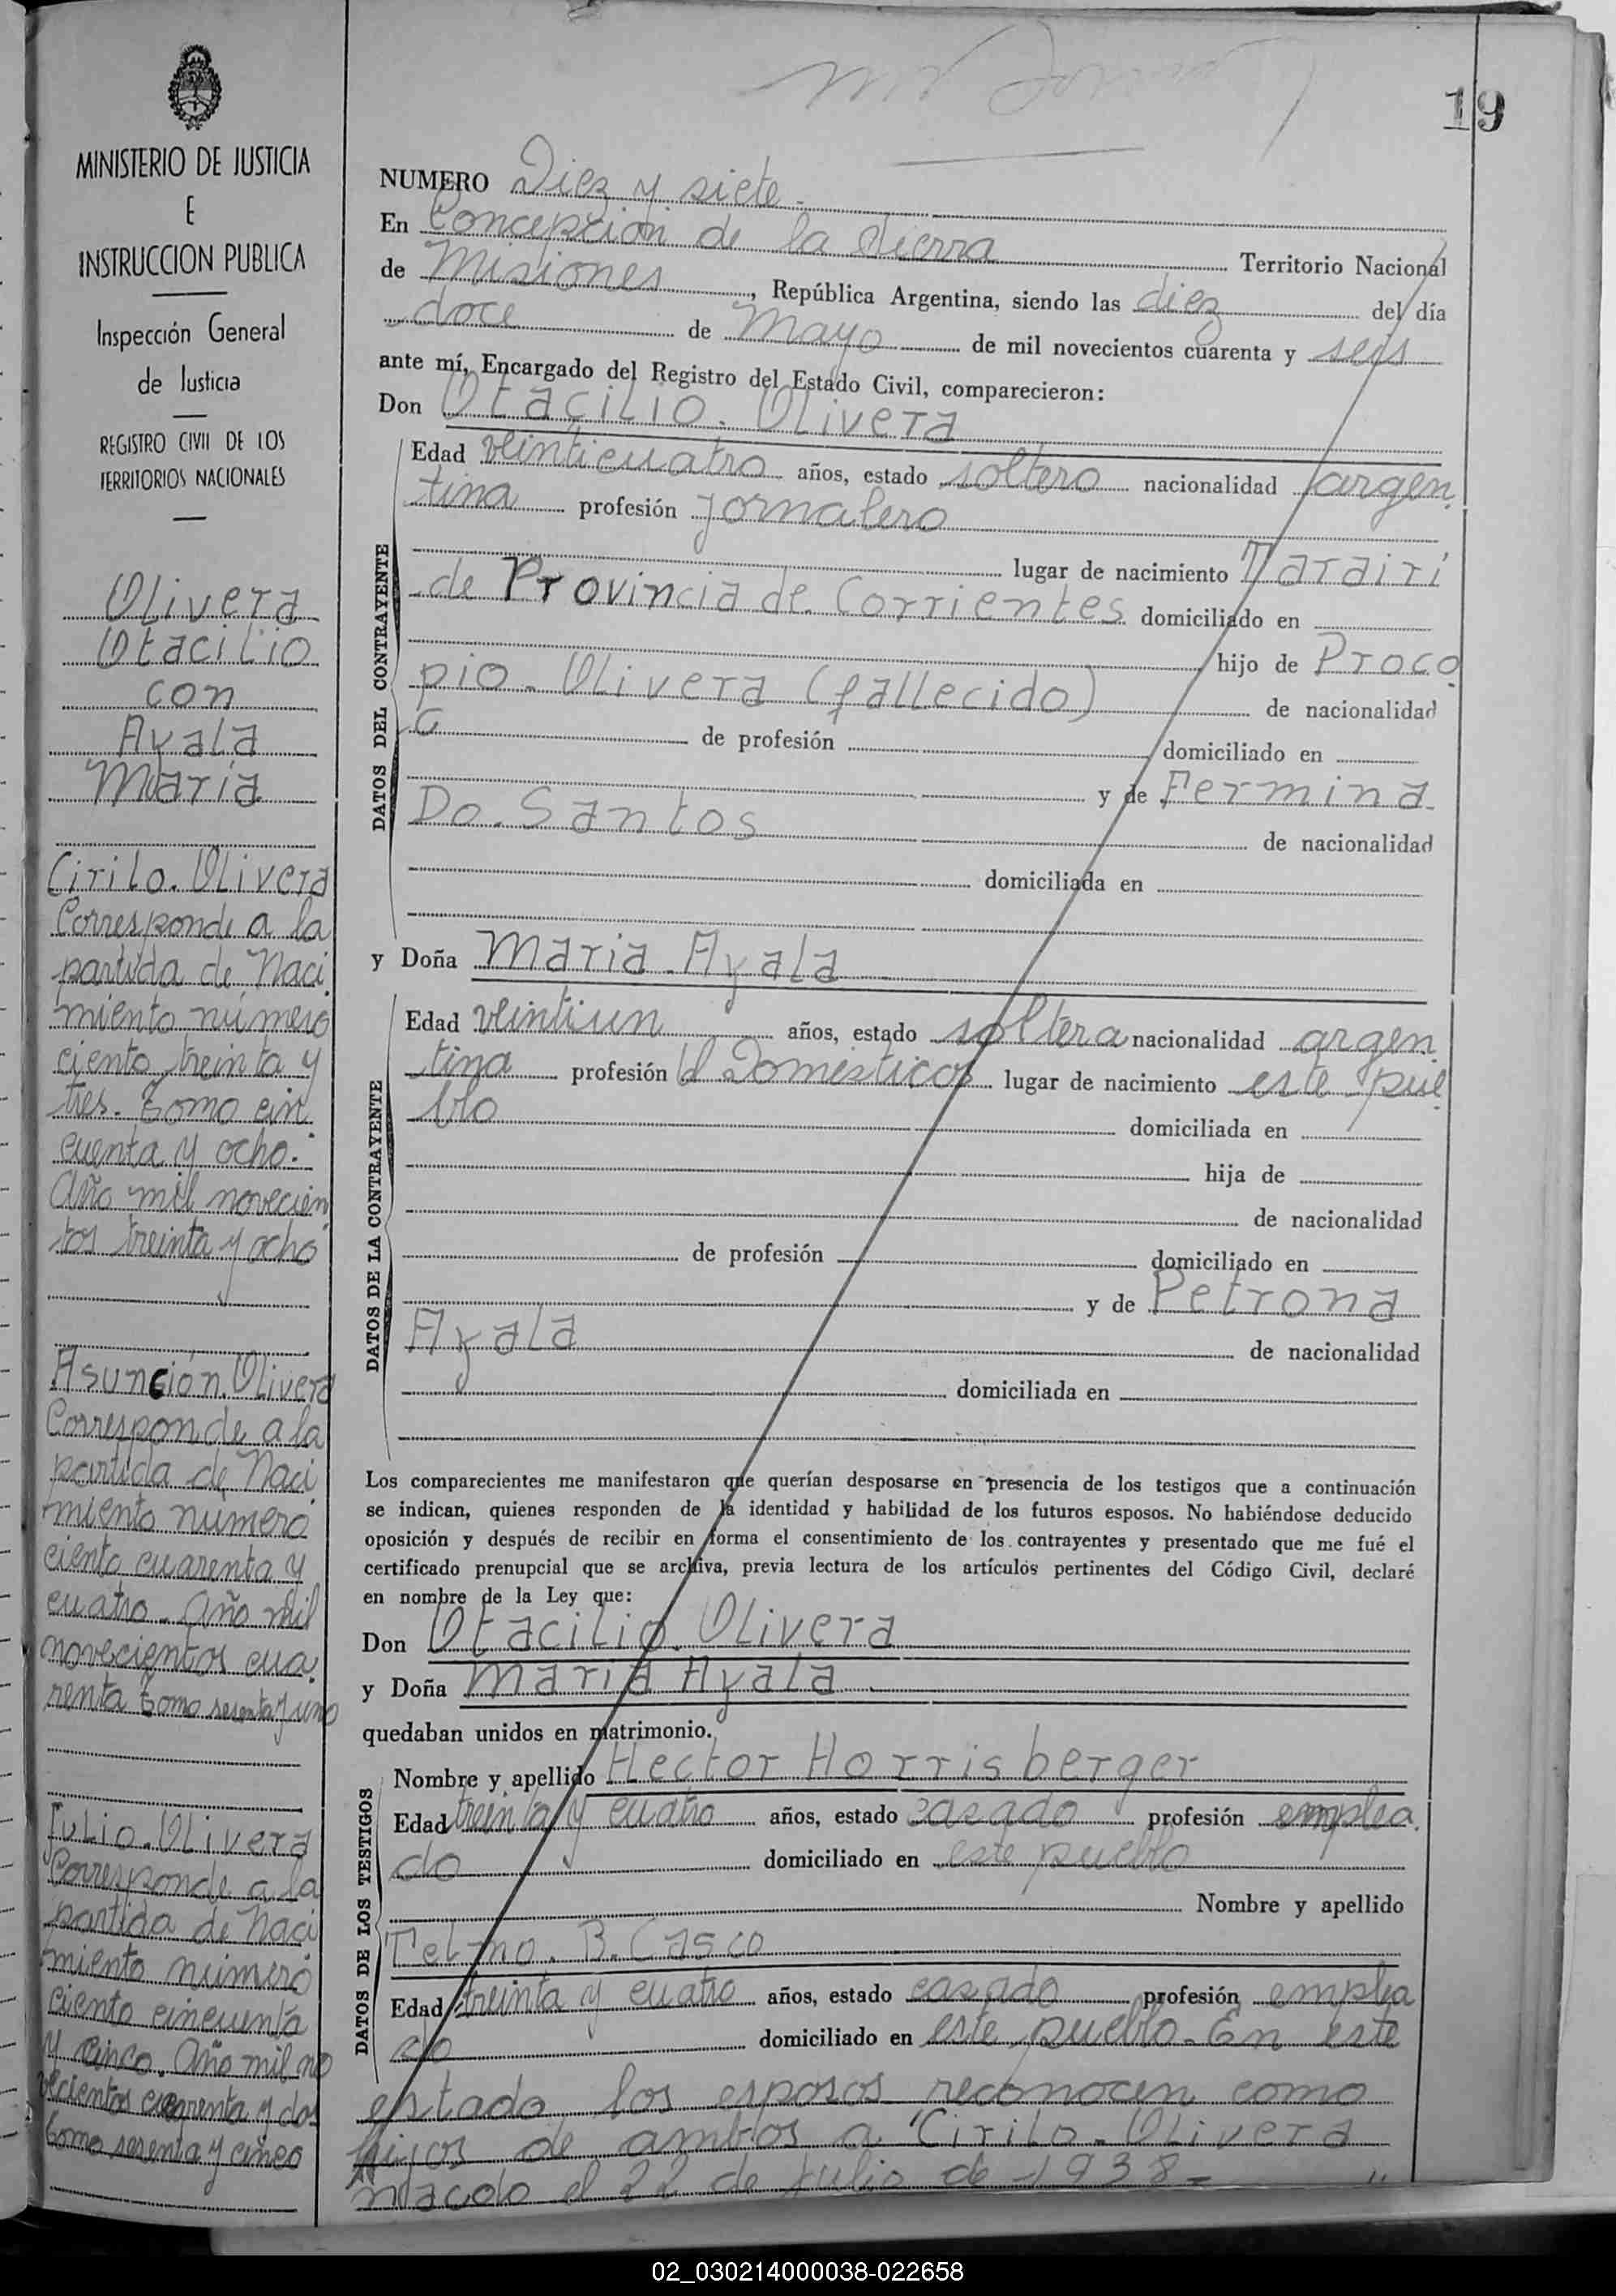 19
MINISTERIO DE JUSTICIA
E
INSTRUCCION PUBLICA
Inspección General
de Justicia
REGISTRO CIVIL DE LOS
TERRITORIOS NACIONALES
Olivera
Otacilio
con
Ayala
Maria
Cirilo. Olivera
Corresponde a la
partida de Naci
miento número
ciento treinta y
tres. Tomo cin
cuenta y ocho.
Año mil novecien
tos treinta y ocho
Asunción. Olivera
Corresponde a la
partida de Naci
miento numero
ciento cuarenta y
cuatro. Año mil
novecientos cua
renta Tomo sesenta y uno
Julio. Olivera
Corresponde a la
partida de Naci
miento número
ciento cincuenta
y cinco. Año mil no
vecientos cuarenta y dos
Tomo sesenta y cinco
NUMERO Diez y siete.
En Concepción de la Sierra Territorio Nacional
de Misiones, República Argentina, siendo las diez del día
doce de Mayo de mil novecientos cuarenta y seis
ante mí, Encargado del Registro del Estado Civil, comparecieron:
Don Otacilio. Olivera
DATOS DEL CONTRAYENTE
Edad veinticuatro años, estado soltero nacionalidad argen
tina profesión jornalero
lugar de nacimiento Tarairi
de Provincia de Corrientes domiciliado en
hijo de Proco
pio. Olivera (fallecido) de nacionalidad
de profesión domiciliado en
y de Fermina
Do. Santos de nacionalidad
domiciliada en
y Doña Maria. Ayala
DATOS DE LA CONTRAYENTE
Edad veintiun años, estado soltera nacionalidad argen
tina profesión Domésticos lugar de nacimiento este pue
blo domiciliada en
hija de
de nacionalidad
de profesión domiciliado en
y de Petrona
Ayala de nacionalidad
domiciliada en
Los comparecientes me manifestaron que querían desposarse en presencia de los testigos que a continuación
se indican, quienes responden de la identidad y habilidad de los futuros esposos. No habiéndose deducido
oposición y después de recibir en forma el consentimiento de los contrayentes y presentado que me fué el
certificado prenupcial que se archiva, previa lectura de los artículos pertinentes del Código Civil, declaré
en nombre de la Ley que:
Don Otacilio. Olivera
y Doña Maria Ayala
quedaban unidos en matrimonio.
DATOS DE LOS TESTIGOS
Nombre y apellido Hector Horrisberger
Edad treinta y cuatro años, estado casado profesión emplea
do domiciliado en este pueblo
Nombre y apellido
Telmo. B. Casco
Edad treinta y cuatro años, estado casado profesión emplea
do domiciliado en este pueblo. En este
estado los esposos reconocen como
hijos de ambos a "Cirilo. Olivera
nacido el 22 de Julio de 1938 - "
02_030214000038-022658